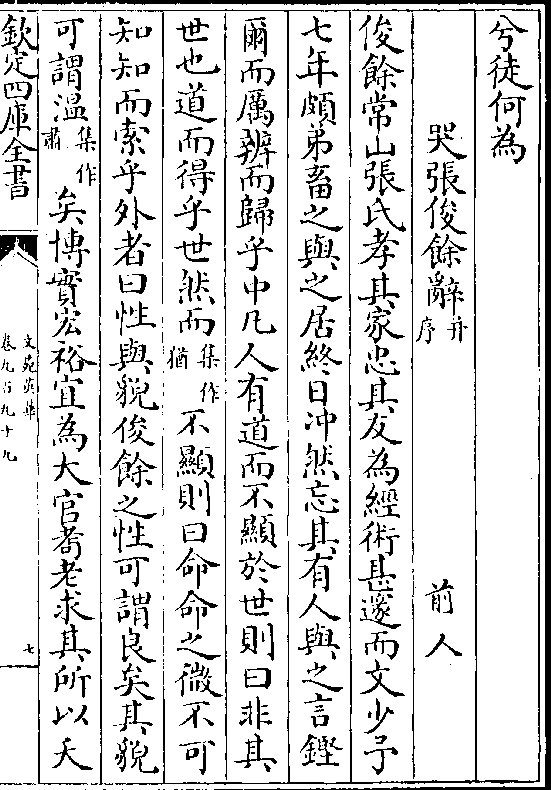 兮徒何為
哭張俊餘辭并序 前人
俊餘常山張氏孝其家忠其友為經術甚邃而文少予
七年頗弟畜之與之居終日冲然忘其有人與之言鏗
爾而厲辨而歸乎中凡人有道而不顯於世則曰非其
世也道而得乎世然而集作猶不顯則曰命命之微不可
知知而索乎外者曰性與貌俊餘之性可謂良矣其貌
可謂溫集作肅矣博實宏裕宜為大官耇老求其所以夭
欽定四庫全書
文苑英華
卷九百九十九
七